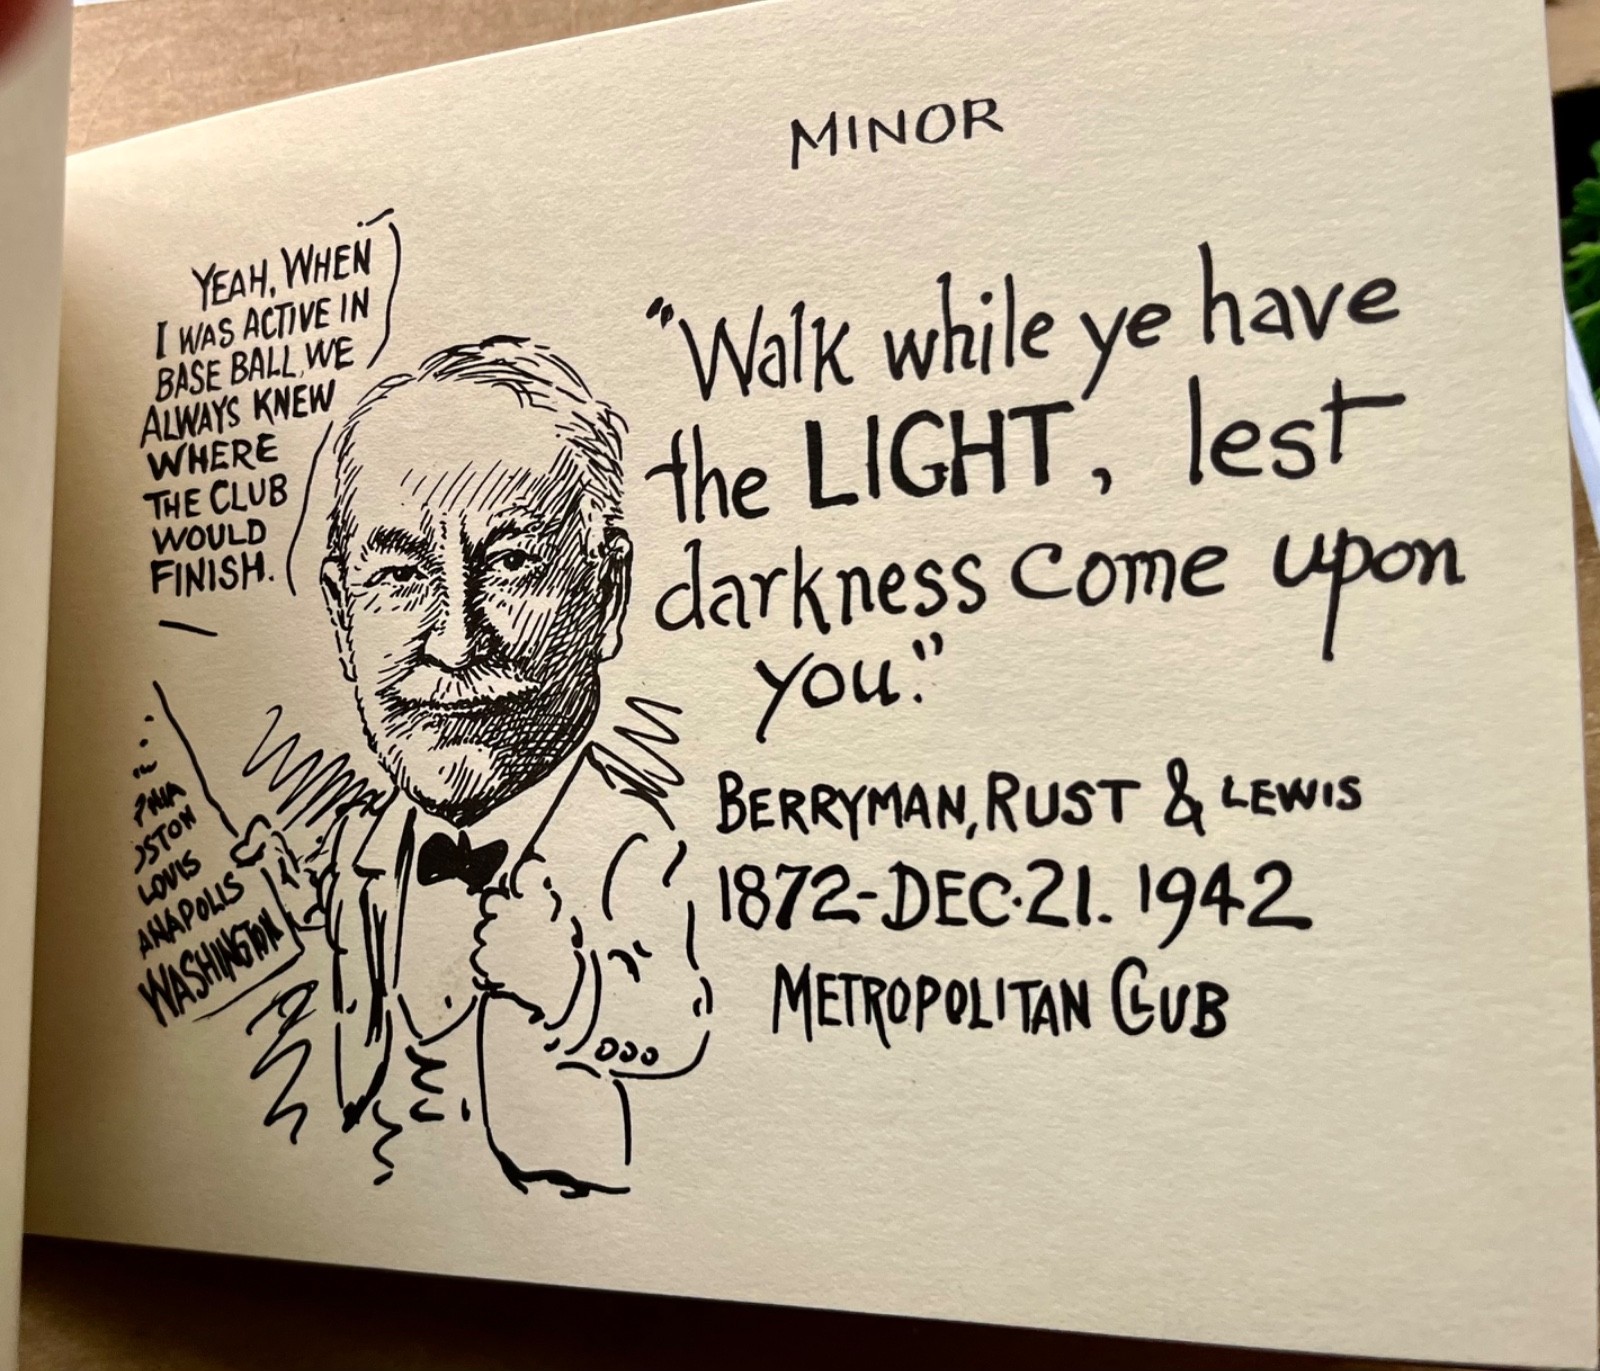 MINOR
YEAH, WHEN
I WAS ACTIVE IN
BASE BALL, WE
ALWAYS KNEW
WHERE
THE CLUB
WOULD
FINISH.
"Walk while ye have
the LIGHT, lest
darkness come upon
you."
BERRYMAN, RUST & LEWIS
1872-DEC. 21. 1942
METROPOLITAN CLUB
OSTON
LOUIS
ANAPOLIS
WASHINGTON